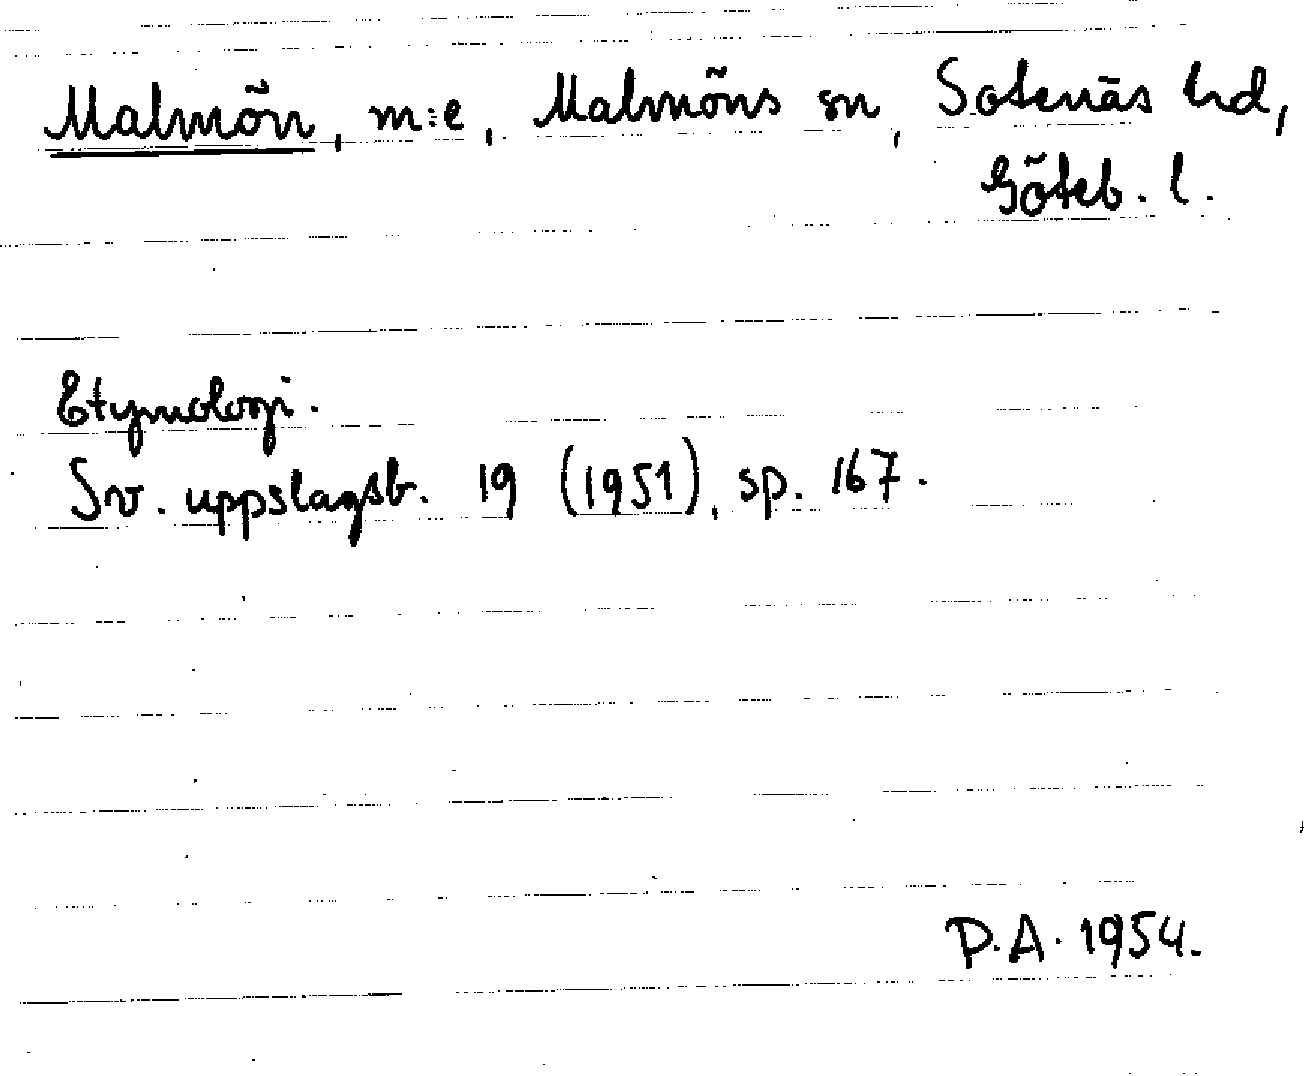 Malmön, m:e, Malmöns sn, Sotenäs hd,
Göteb. l.
Etymologi.
Sv. uppslagsb. 19 (1951), sp. 167.
P.A. 1954.